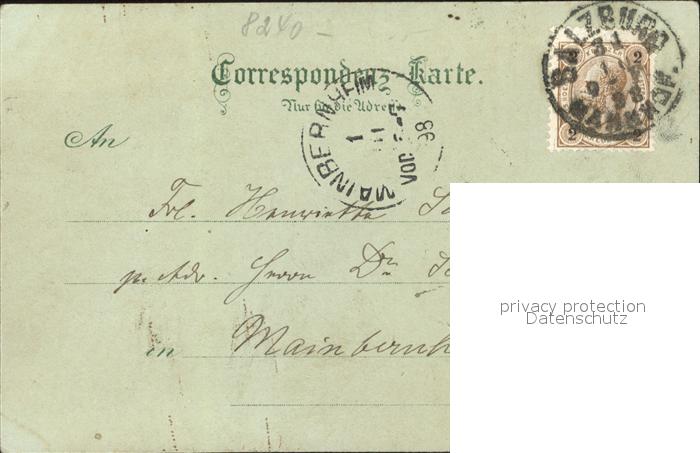 8240 –
Correspondenz-Karte.
Nur für die Adresse
SALZBURG
2 2
MAINBERNHEIM
1
11
Vor
98
An
Frl. Henriette
p. Adr. Herrn Dr
in Mainbernh
privacy protection
Datenschutz